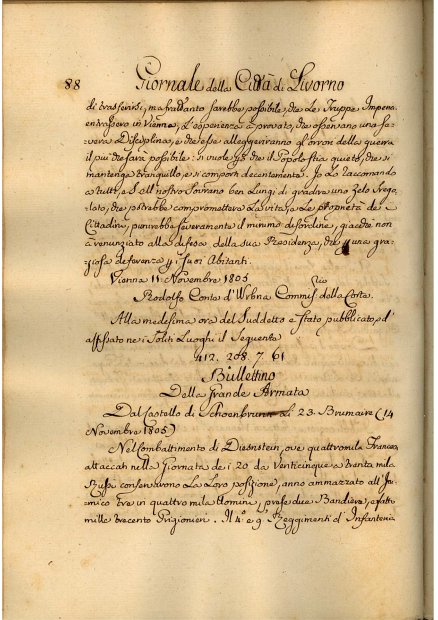 88 Giornale della Città di Livorno
di trasferirsi, ma frattanto sarebbe possibile, che Le Truppe Imper.
entrassero in Vienna, L'esperienza à provato, che osservano una se-
vera Disciplina, e che esse alleggeriranno gl'orrori della guerra
il più che sarà possibile: si vuole che il Popolo stia quieto, che si
mantenga tranquillo, e si comporti decentemente. Io Lo raccomando
a tutti, e S. M. nostro Sovrano ben Lungi di gradire uno zelo srego-
lato, che potrebbe compromettere La vita, e Le proprietà de i
Cittadini, punirebbe severamente il minimo disordine, giacchè non
à renunziato alla difesa della sua Residenza, che una gra-
ziosa deferenza i suoi Abitanti.
Vienna 11 Novembre 1805
Rodolfo Conte d'Wrbna Commis. della Corte.
Alla medesima ora del Suddetto è stato pubblicato, ed
affissato ne i soliti Luoghi il Seguente
412. 208. 7. 61
Bullettino
Della Grande Armata
Dal Castello di Schoenbrunn al 23. Brumaire (14
Novembre 1805)
Nel combattimento di Diernstein, ove quattromila Francesi
attaccati nella Giornata de i 20 da venticinque a trenta mila
Russi conservarono La Loro posizione, anno ammazzato all'Ini-
mico tre in quattro mila Uomini, prese due Bandiere, e fatti
mille trecento Prigionieri. Il 4.° e 9. Reggimenti d'Infanteria